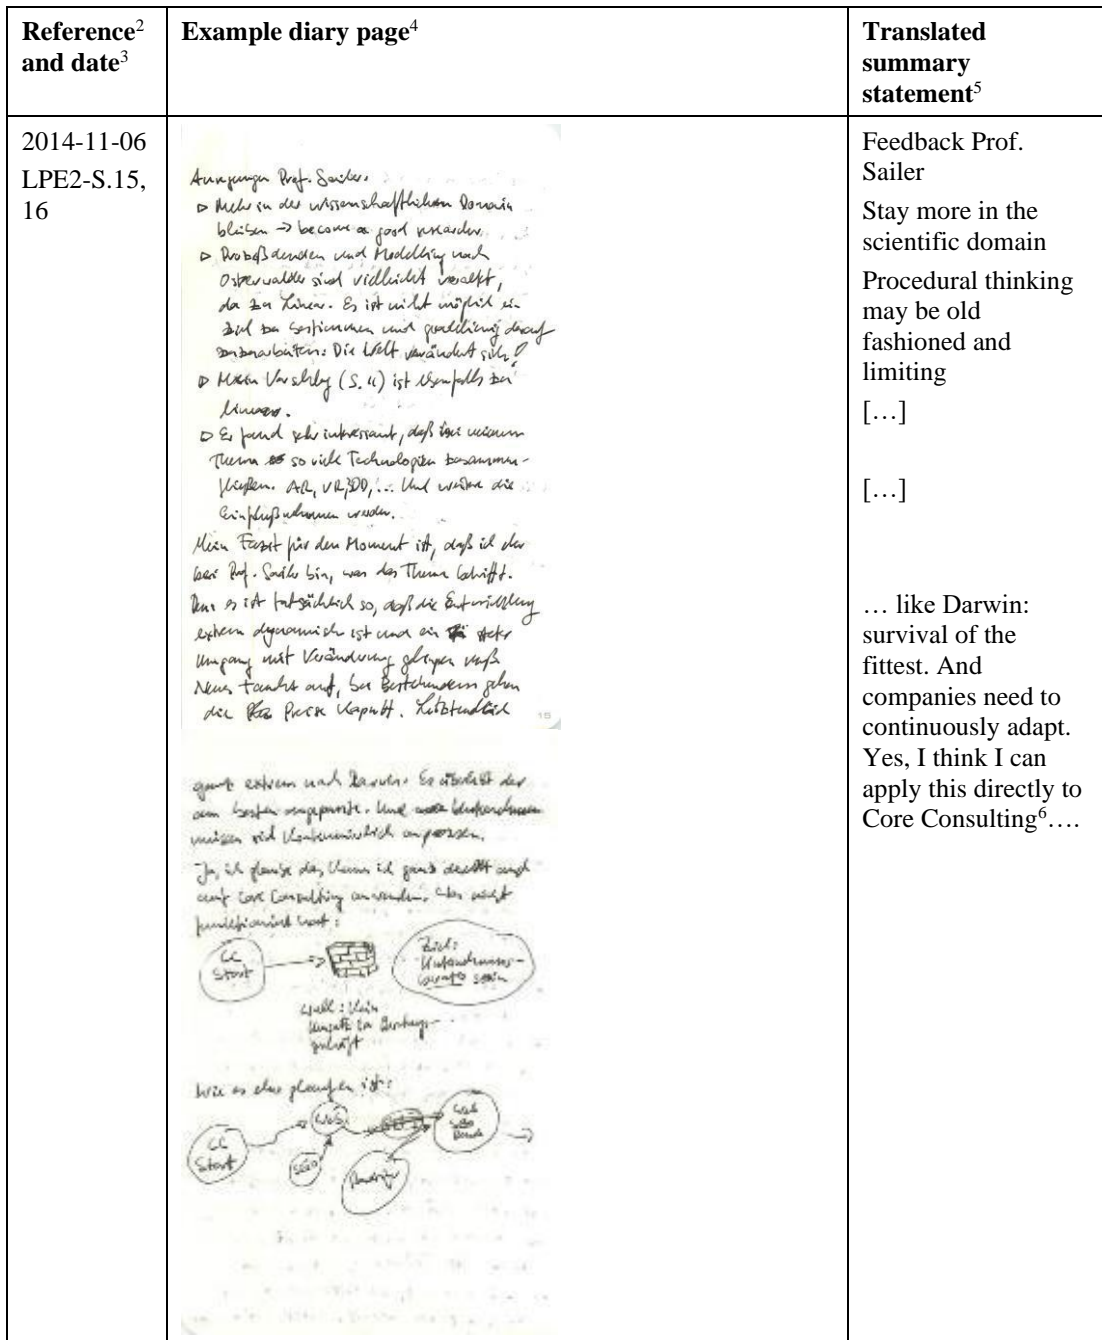 Reference² and date³
Example diary page⁴
Translated summary statement⁵
2014-11-06
LPE2-S.15, 16
Anregungen Prof. Sailer:
▷ Mehr in der wissenschaftlichen Domain
bleiben → become a good researcher.
▷ Prozeßdenken und Modelling nach
Osterwalder sind vielleicht veraltet,
da zu linear. Es ist nicht möglich ein
Ziel zu bestimmen und geradlinig darauf
hinzuarbeiten: Die Welt verändert sich!
▷ Mein Vorschlag (S. 11) ist ebenfalls zu
linear.
▷ Er fand sehr interessant, daß bei meinem
Thema so viele Technologien zusammen-
fließen. AR, VR, 3D, ... Und weitere die
Einfluß nehmen werden.
Mein Fazit für den Moment ist, daß ich
bei Prof. Sailer bin, was das Thema betrifft.
Denn es ist tatsächlich so, daß die Entwicklung
extrem dynamisch ist und ein steter
Umgang mit Veränderung gelingen muß.
Neues taucht auf, bei Bestehendem gehen
die Preise kaputt. Letztendlich
15
ganz extrem nach Darwin. Es überlebt der
am besten angepasste. Und Unternehmen
müssen sich kontinuierlich anpassen.
Ja, ich glaube das kann ich ganz direkt auch
auf Core Consulting anwenden. Was nicht
funktioniert hat:
CC
Start
Ziel:
Unternehmens-
berater sein
Wall: Kein
Umsatz im Beratungs-
geschäft
Wie es eher gelaufen ist:
CC
Start
Web
SEO
Web
SEO
Feedback Prof. Sailer
Stay more in the scientific domain
Procedural thinking may be old fashioned and limiting
[…]
[…]
… like Darwin: survival of the fittest. And companies need to continuously adapt. Yes, I think I can apply this directly to Core Consulting⁶….